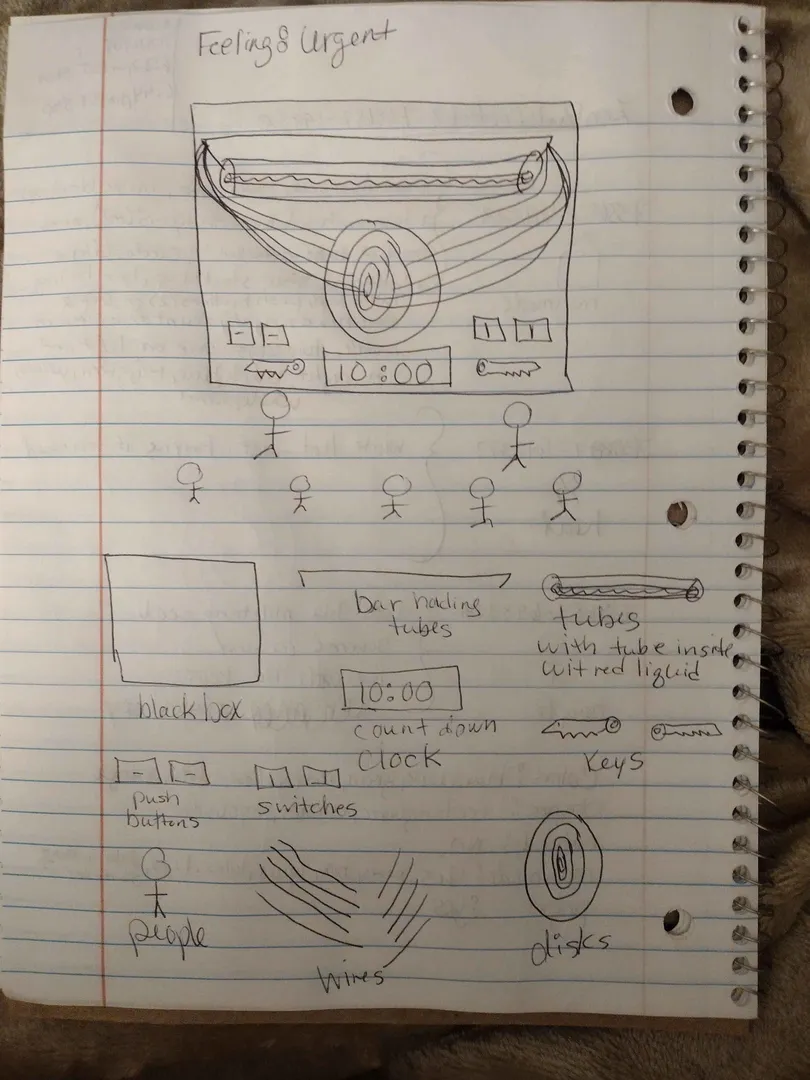 Feeling: Urgent
10:00
bar holding
tubes
tubes
with tube inside
wit red liquid
black box
10:00
count down
clock
keys
push
buttons
switches
people
wires
disks